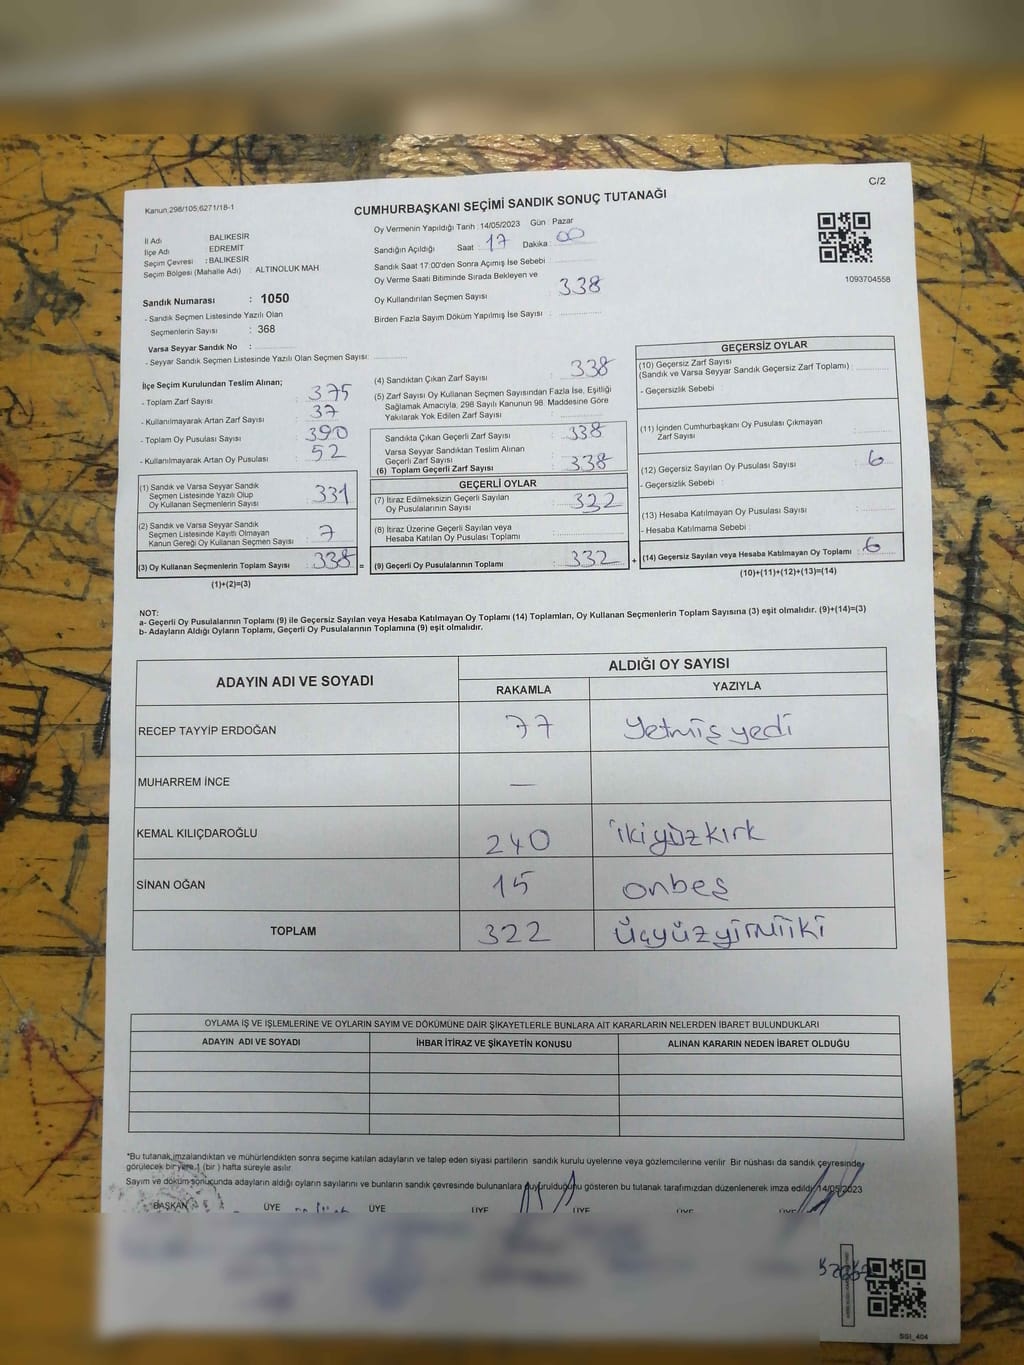 C/2
Kanun,298/105,6271/18-1
CUMHURBAŞKANI SEÇİMİ SANDIK SONUÇ TUTANAĞI
İl Adı : BALIKESİR
İlçe Adı : EDREMİT
Seçim Çevresi : BALIKESİR
Seçim Bölgesi (Mahalle Adı) : ALTINOLUK MAH
Sandık Numarası : 1050
- Sandık Seçmen Listesinde Yazılı Olan
Seçmenlerin Sayısı : 368
Varsa Seyyar Sandık No :
- Seyyar Sandık Seçmen Listesinde Yazılı Olan Seçmen Sayısı:
Oy Vermenin Yapıldığı Tarih :14/05/2023 Gün : Pazar
Sandığın Açıldığı Saat : 17 Dakika : 00
Sandık Saat 17:00'den Sonra Açımış İse Sebebi :
Oy Verme Saati Bitiminde Sırada Bekleyen ve
Oy Kullandırılan Seçmen Sayısı : 338
Birden Fazla Sayım Döküm Yapılmış İse Sayısı :
1093704558
İlçe Seçim Kurulundan Teslim Alınan;
- Toplam Zarf Sayısı : 375
- Kullanılmayarak Artan Zarf Sayısı : 37
- Toplam Oy Pusulası Sayısı : 390
- Kullanılmayarak Artan Oy Pusulası : 52
(1) Sandık ve Varsa Seyyar Sandık
Seçmen Listesinde Yazılı Olup
Oy Kullanan Seçmenlerin Sayısı : 331
(2) Sandık ve Varsa Seyyar Sandık
Seçmen Listesinde Kayıtlı Olmayan
Kanun Gereği Oy Kullanan Seçmen Sayısı : 7
(3) Oy Kullanan Seçmenlerin Toplam Sayısı : 338 =
(1)+(2)=(3)
(4) Sandıktan Çıkan Zarf Sayısı : 338
(5) Zarf Sayısı Oy Kullanan Seçmen Sayısından Fazla İse, Eşitliği
Sağlamak Amacıyla, 298 Sayılı Kanunun 98. Maddesine Göre
Yakılarak Yok Edilen Zarf Sayısı :
Sandıkta Çıkan Geçerli Zarf Sayısı : 338
Varsa Seyyar Sandıktan Teslim Alınan
Geçerli Zarf Sayısı
(6) Toplam Geçerli Zarf Sayısı : 338
GEÇERLİ OYLAR
(7) İtiraz Edilmeksizin Geçerli Sayılan
Oy Pusulalarının Sayısı : 322
(8) İtiraz Üzerine Geçerli Sayılan veya
Hesaba Katılan Oy Pusulası Toplamı :
(9) Geçerli Oy Pusulalarının Toplamı : 332 +
GEÇERSİZ OYLAR
(10) Geçersiz Zarf Sayısı
(Sandık ve Varsa Seyyar Sandık Geçersiz Zarf Toplamı) :
- Geçersizlik Sebebi :
(11) İçinden Cumhurbaşkanı Oy Pusulası Çıkmayan
Zarf Sayısı :
(12) Geçersiz Sayılan Oy Pusulası Sayısı : 6
- Geçersizlik Sebebi :
(13) Hesaba Katılmayan Oy Pusulası Sayısı :
- Hesaba Katılmama Sebebi :
(14) Geçersiz Sayılan veya Hesaba Katılmayan Oy Toplamı : 6
(10)+(11)+(12)+(13)=(14)
NOT:
a- Geçerli Oy Pusulalarının Toplamı (9) ile Geçersiz Sayılan veya Hesaba Katılmayan Oy Toplamı (14) Toplamları, Oy Kullanan Seçmenlerin Toplam Sayısına (3) eşit olmalıdır. (9)+(14)=(3)
b- Adayların Aldığı Oyların Toplamı, Geçerli Oy Pusulalarının Toplamına (9) eşit olmalıdır.
ADAYIN ADI VE SOYADI
ALDIĞI OY SAYISI
RAKAMLA YAZIYLA
RECEP TAYYİP ERDOĞAN 77 Yetmiş yedi
MUHARREM İNCE —
KEMAL KILIÇDAROĞLU 240 ikiyüzkırk
SİNAN OĞAN 15 onbeş
TOPLAM 322 Üçyüzyirmiiki
OYLAMA İŞ VE İŞLEMLERİNE VE OYLARIN SAYIM VE DÖKÜMÜNE DAİR ŞİKAYETLERLE BUNLARA AİT KARARLARIN NELERDEN İBARET BULUNDUKLARI
ADAYIN ADI VE SOYADI İHBAR İTİRAZ VE ŞİKAYETİN KONUSU ALINAN KARARIN NEDEN İBARET OLDUĞU
*Bu tutanak,imzalandıktan ve mühürlendikten sonra seçime katılan adayların ve talep eden siyasi partilerin sandık kurulu üyelerine veya gözlemcilerine verilir Bir nüshası da sandık çevresinde
görülecek bir yere 1 (bir ) hafta süreyle asılır.
Sayım ve döküm sonucunda adayların aldığı oyların sayılarını ve bunların sandık çevresinde bulunanlara duyurulduğunu gösteren bu tutanak tarafımızdan düzenlenerek imza edildi. 14/05/2023
BAŞKAN ÜYE ÜYE ÜYE ÜYE ÜYE ÜYE
SSI_404